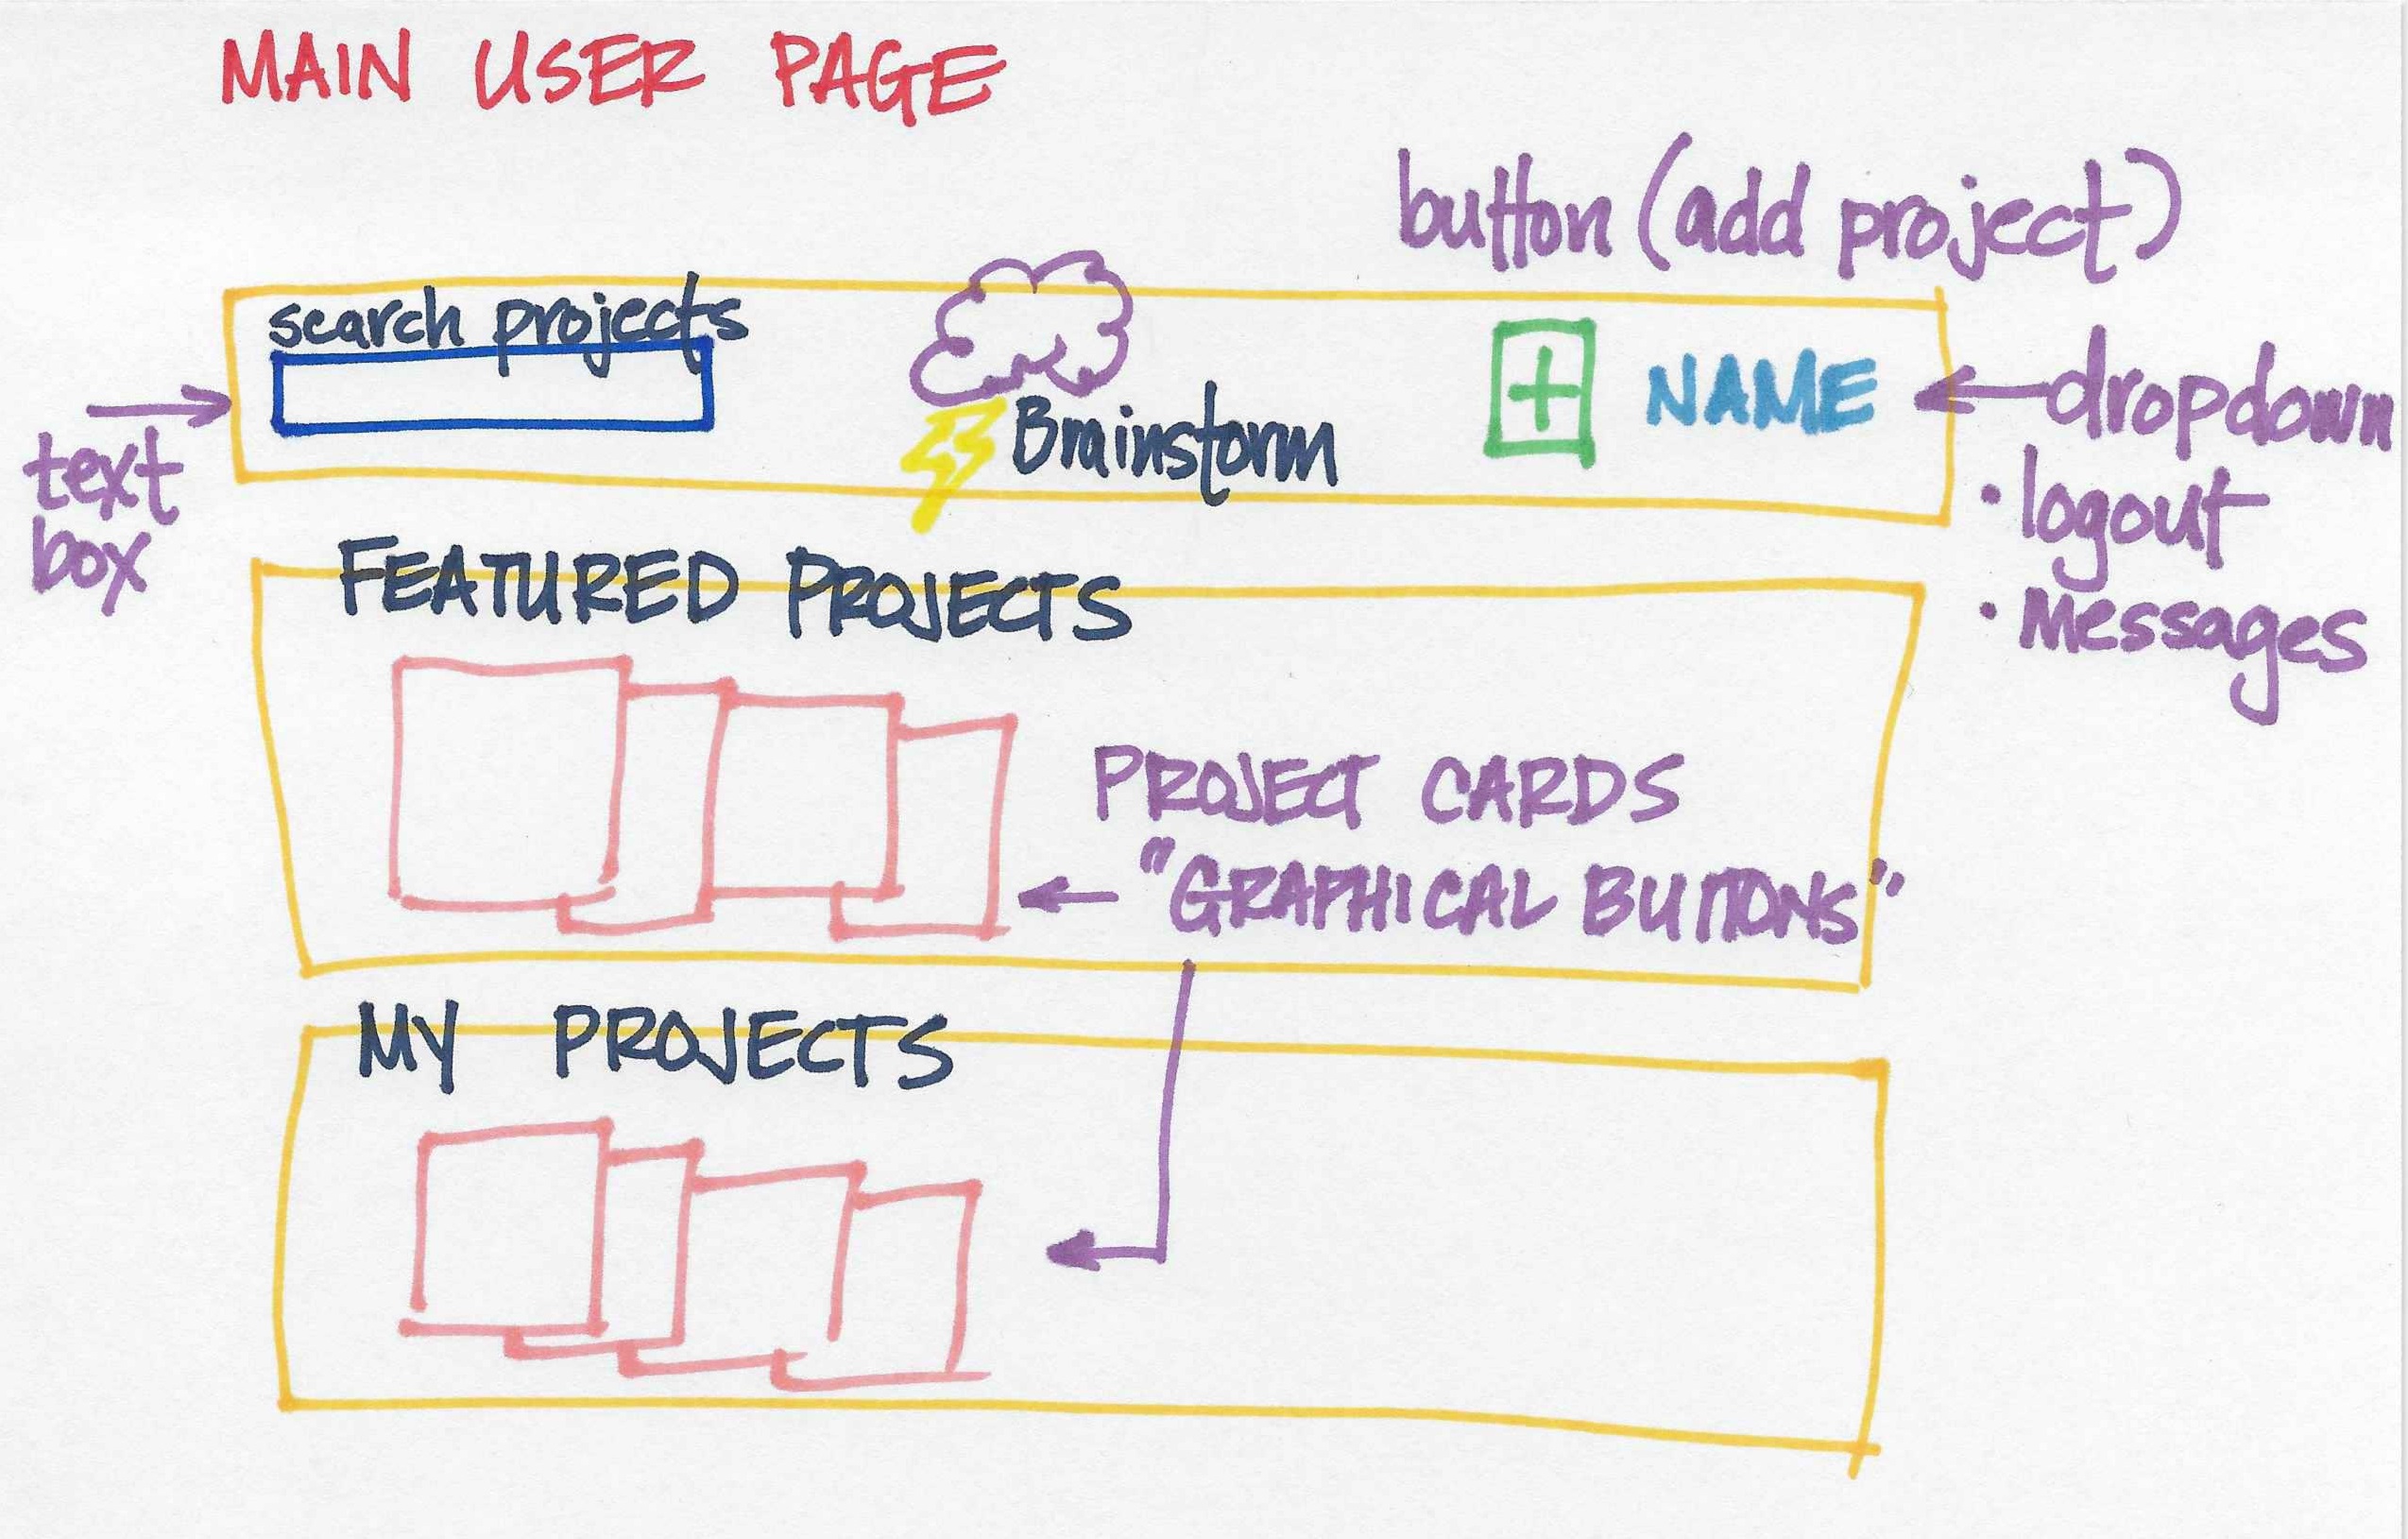 MAIN USER PAGE
button (add project)
search projects
Brainstorm
+ NAME
dropdown
• logout
• Messages
text
box
FEATURED PROJECTS
PROJECT CARDS
"GRAPHICAL BUTTONS"
MY PROJECTS